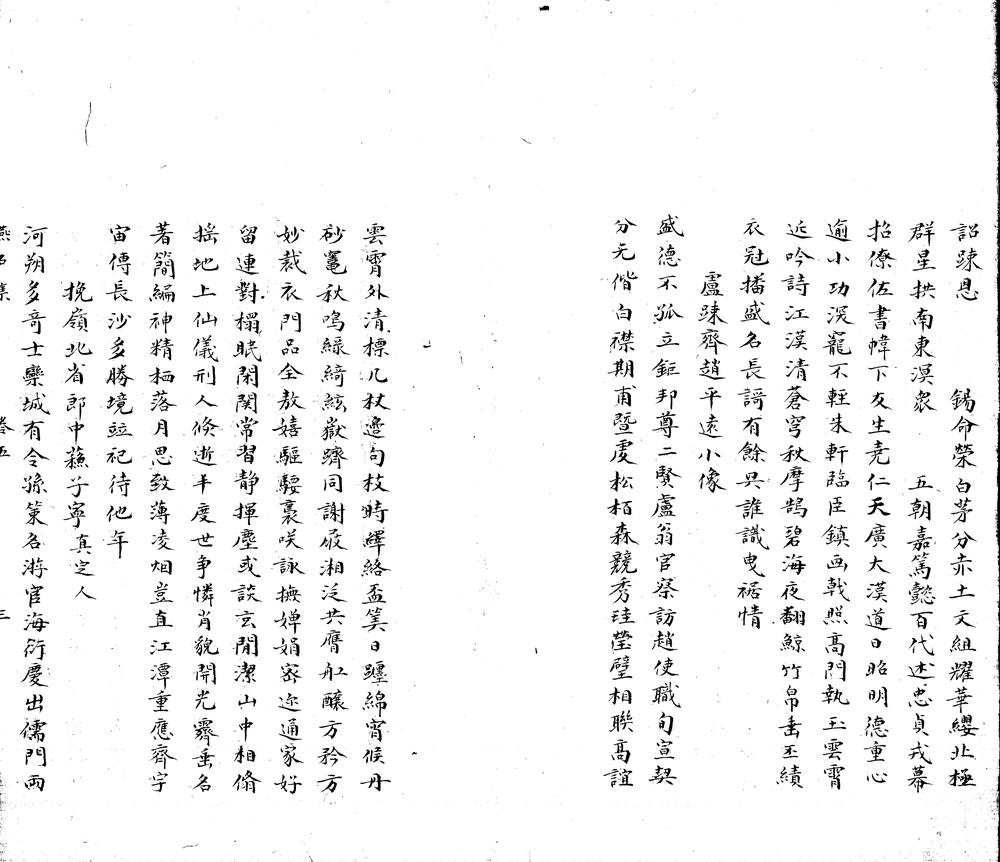 詔踈恩　　錫命榮白茅分赤土文組耀華纓北極
群星拱南東溟衆　　五朝嘉篤懿百代述忠貞戎幕
招僚佐書幃下友生堯仁天廣大漢道日昭明德重心
逾小功深寵不輕朱軒臨臣鎮画戟照高門執玉雲霄
近吟詩江漢清蒼穹秋摩鵠碧海夜翻鯨竹帛垂丕績
衣冠播盛名長謌有餘興誰識曳裾情
盧踈齋趙平遠小像
盛德不孤立鉅邦尊二賢盧翁官察訪趙使職旬宣契
分无偕白襟期甫暨虔松栢森競秀珪瑩璧相聯高誼
雲霄外清標几杖邊句枝時繹絡盃筭日躔綿宵候丹
砂竈秋鳴綠綺絃嶽躋同謝屐湘泛共膺舡釀方矜方
妙裁衣門品全敖嬉驅騕褭咲詠撫嬋娟密迩通家好
留連對榻眠閑関常習静揮塵或談玄閒潔山中相脩
搖地上仙儀刑人倏逝丰度世争憐肖貌開光霽垂名
著簡編神精栖落月思致薄凌烟豈直江潭重應齊宇
宙傳長沙多勝境竝祀待他年
挽嶺北省郎中蘓子寧真定人
河朔多竒士欒城有令孫策名游官海衍慶出儒門兩
燕石集　　卷五　　三